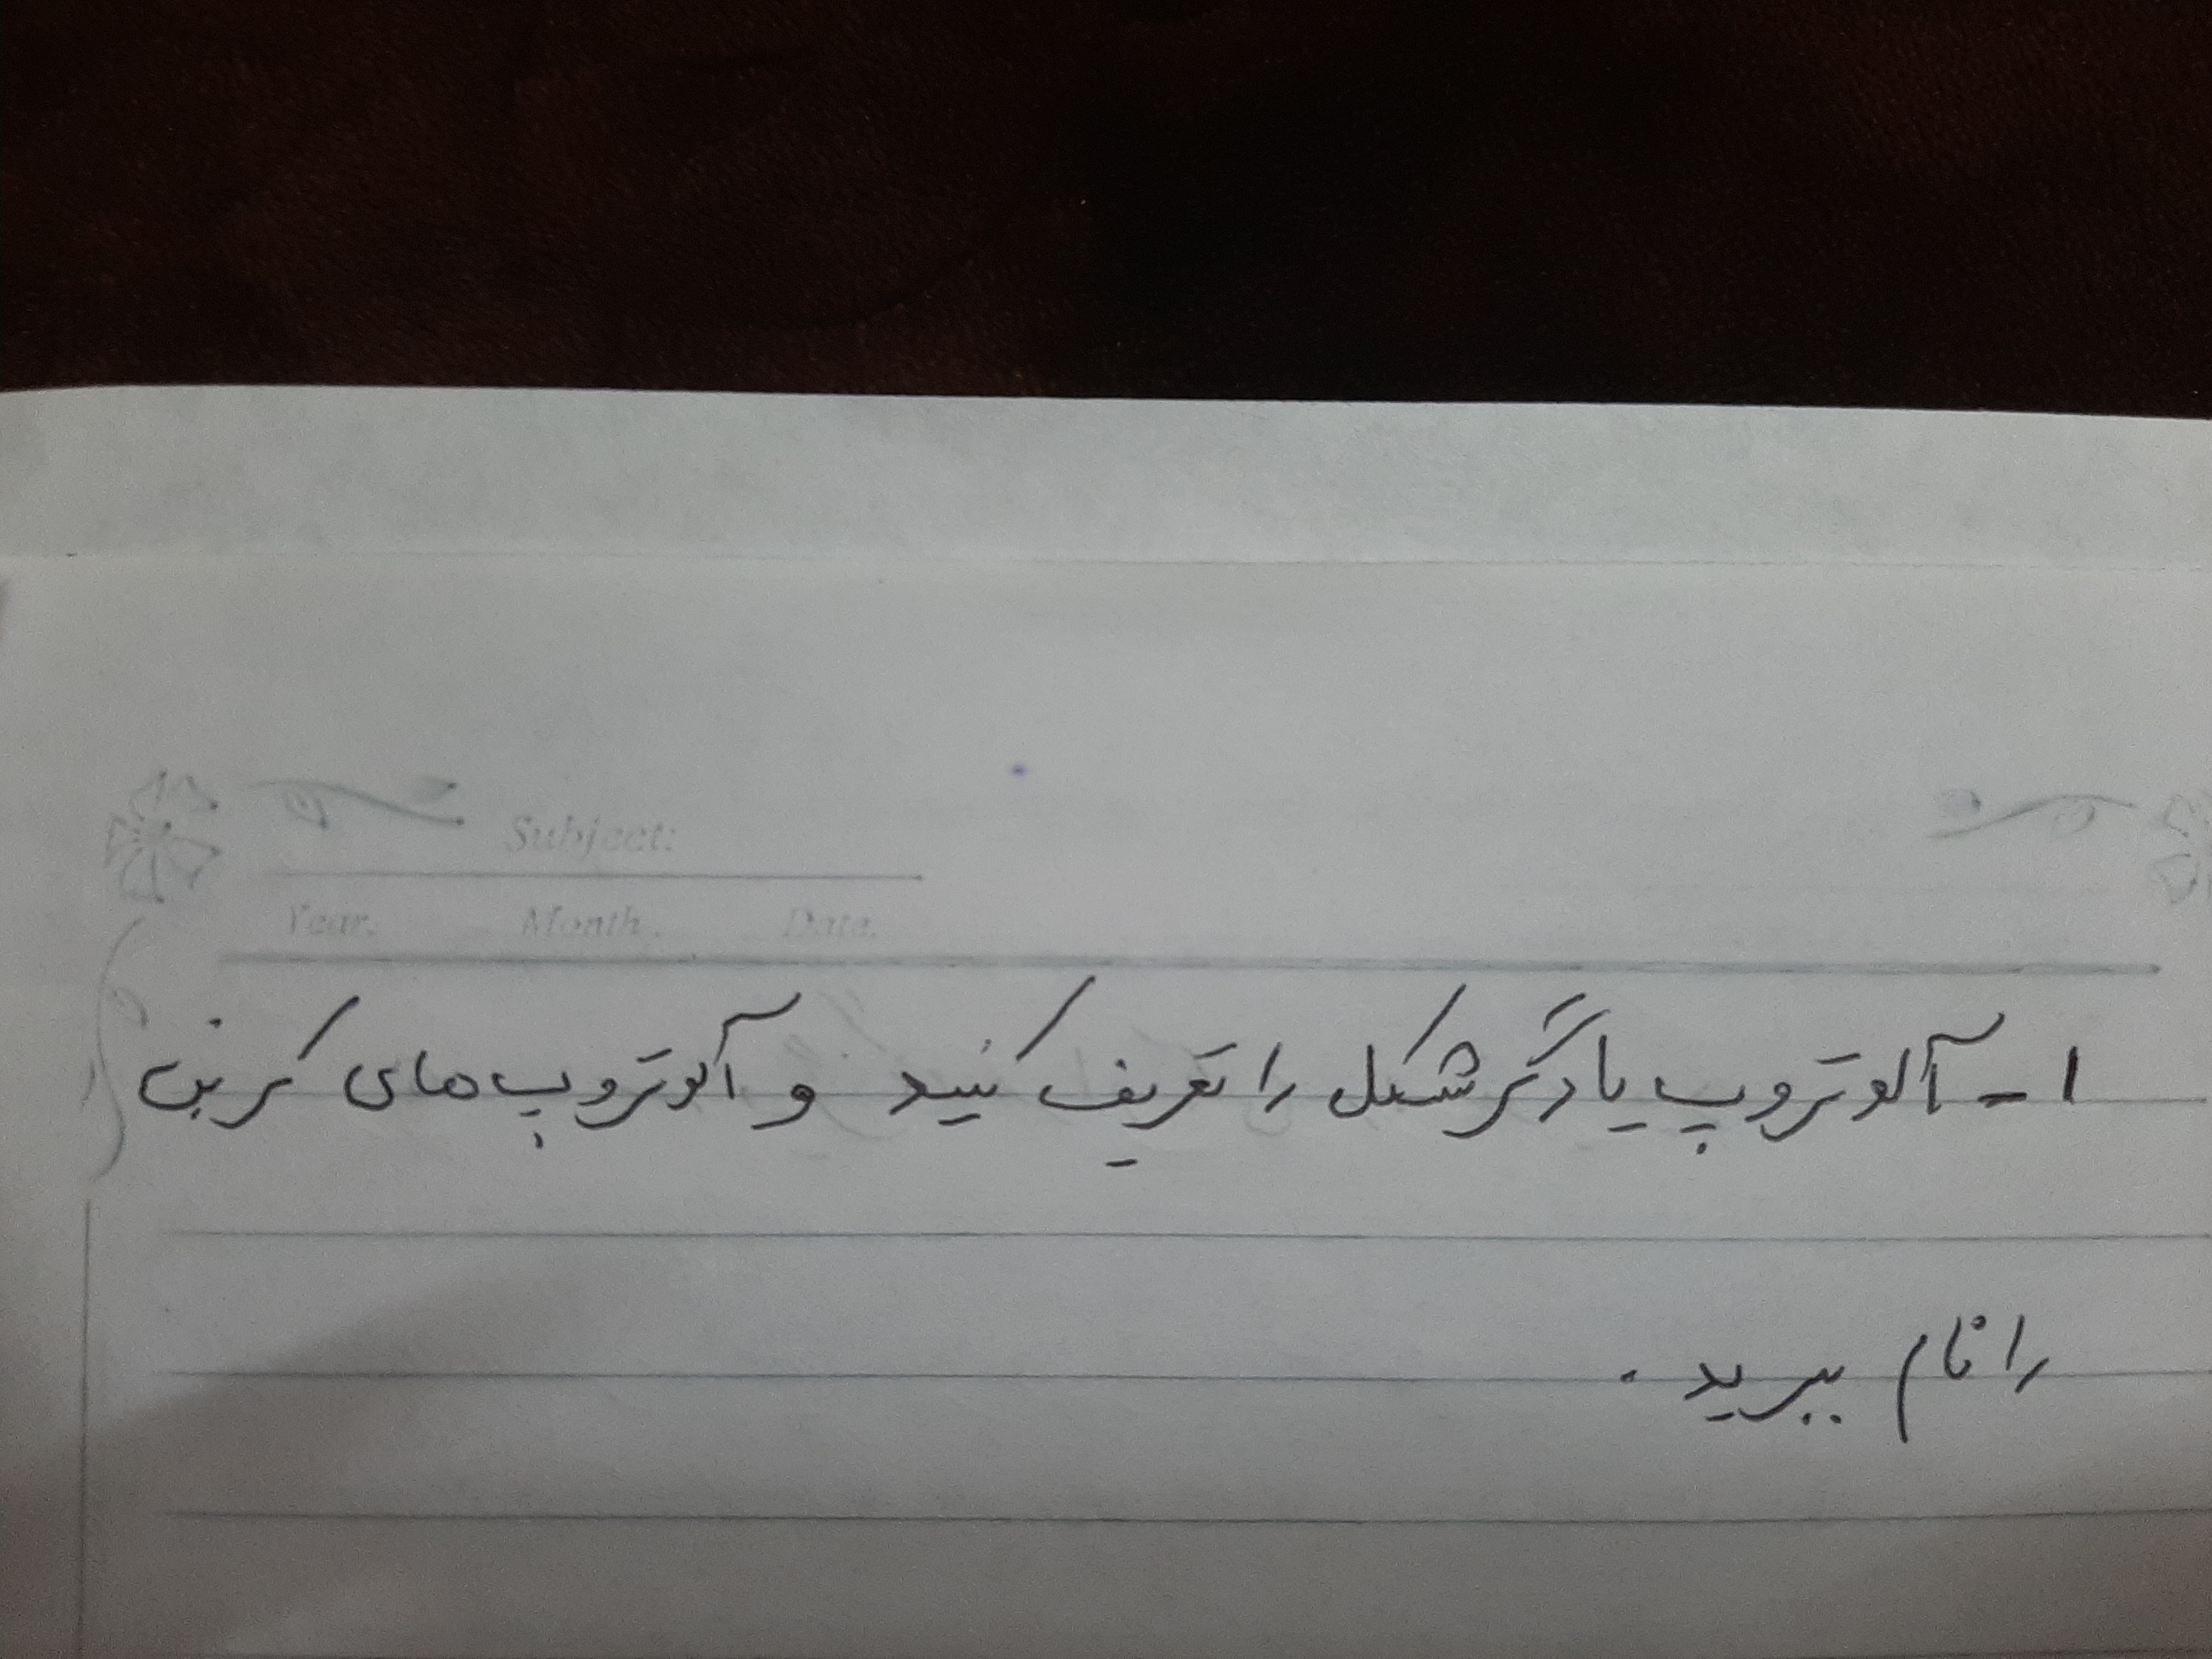 Subject:
Year. Month. Date.
۱- آلوتروپ یا دگرشکل را تعریف کنید و آلوتروپ های کربن
را نام ببرید.